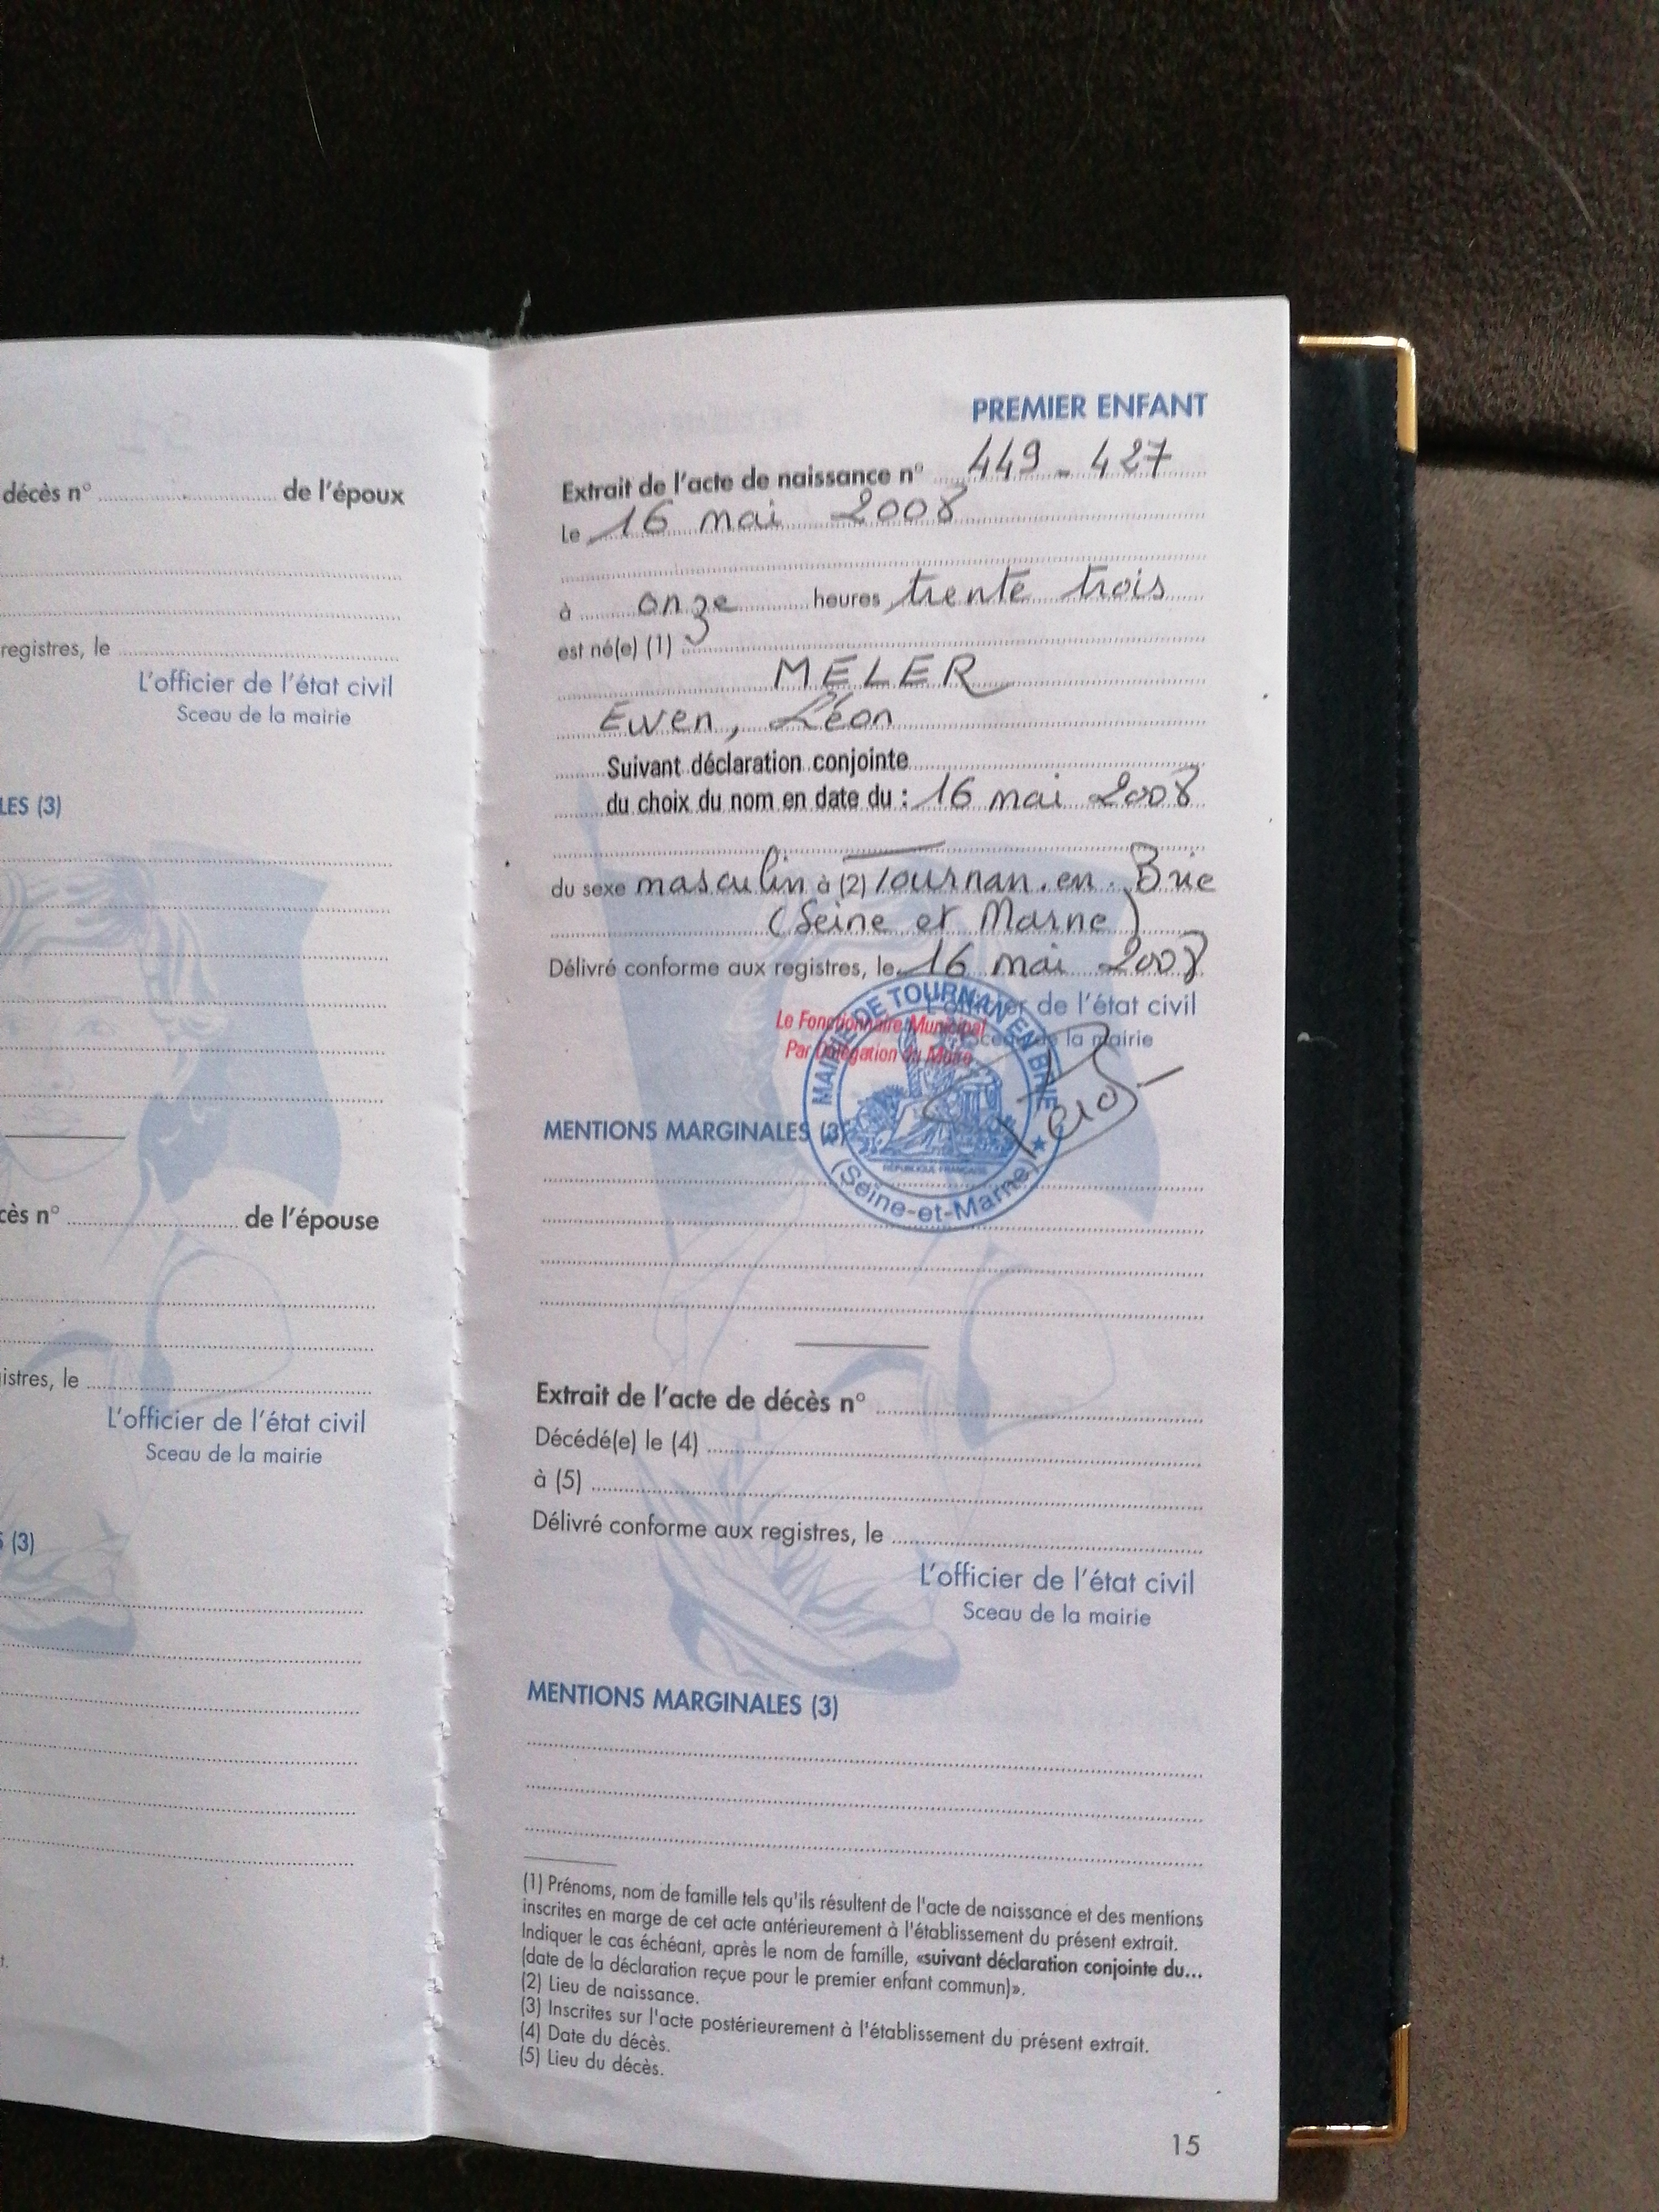 décès n° de l'époux
registres, le
L'officier de l'état civil
Sceau de la mairie
LES (3)
cès n° de l'épouse
istres, le
L'officier de l'état civil
Sceau de la mairie
(3)
t.
PREMIER ENFANT
Extrait de l'acte de naissance n° 449 - 427
Le 16 mai 2008
à onze heures trente trois
est né(e) (1)
MELER
Ewen, Léon
Suivant déclaration conjointe
du choix du nom en date du : 16 mai 2008
du sexe masculin à (2) Tournan.en.Brie
(Seine et Marne)
Délivré conforme aux registres, le 16 mai 2008
L'officier de l'état civil
Sceau de la mairie
Le Fonctionnaire Municipal
Par Délégation du Maire
MAIRIE DE TOURNAN EN BRIE
RÉPUBLIQUE FRANÇAISE
(Seine-et-Marne)
MENTIONS MARGINALES (3)
Extrait de l'acte de décès n°
Décédé(e) le (4)
à (5)
Délivré conforme aux registres, le
L'officier de l'état civil
Sceau de la mairie
MENTIONS MARGINALES (3)
(1) Prénoms, nom de famille tels qu'ils résultent de l'acte de naissance et des mentions
inscrites en marge de cet acte antérieurement à l'établissement du présent extrait.
Indiquer le cas échéant, après le nom de famille, «suivant déclaration conjointe du...
(date de la déclaration reçue pour le premier enfant commun)».
(2) Lieu de naissance.
(3) Inscrites sur l'acte postérieurement à l'établissement du présent extrait.
(4) Date du décès.
(5) Lieu du décès.
15